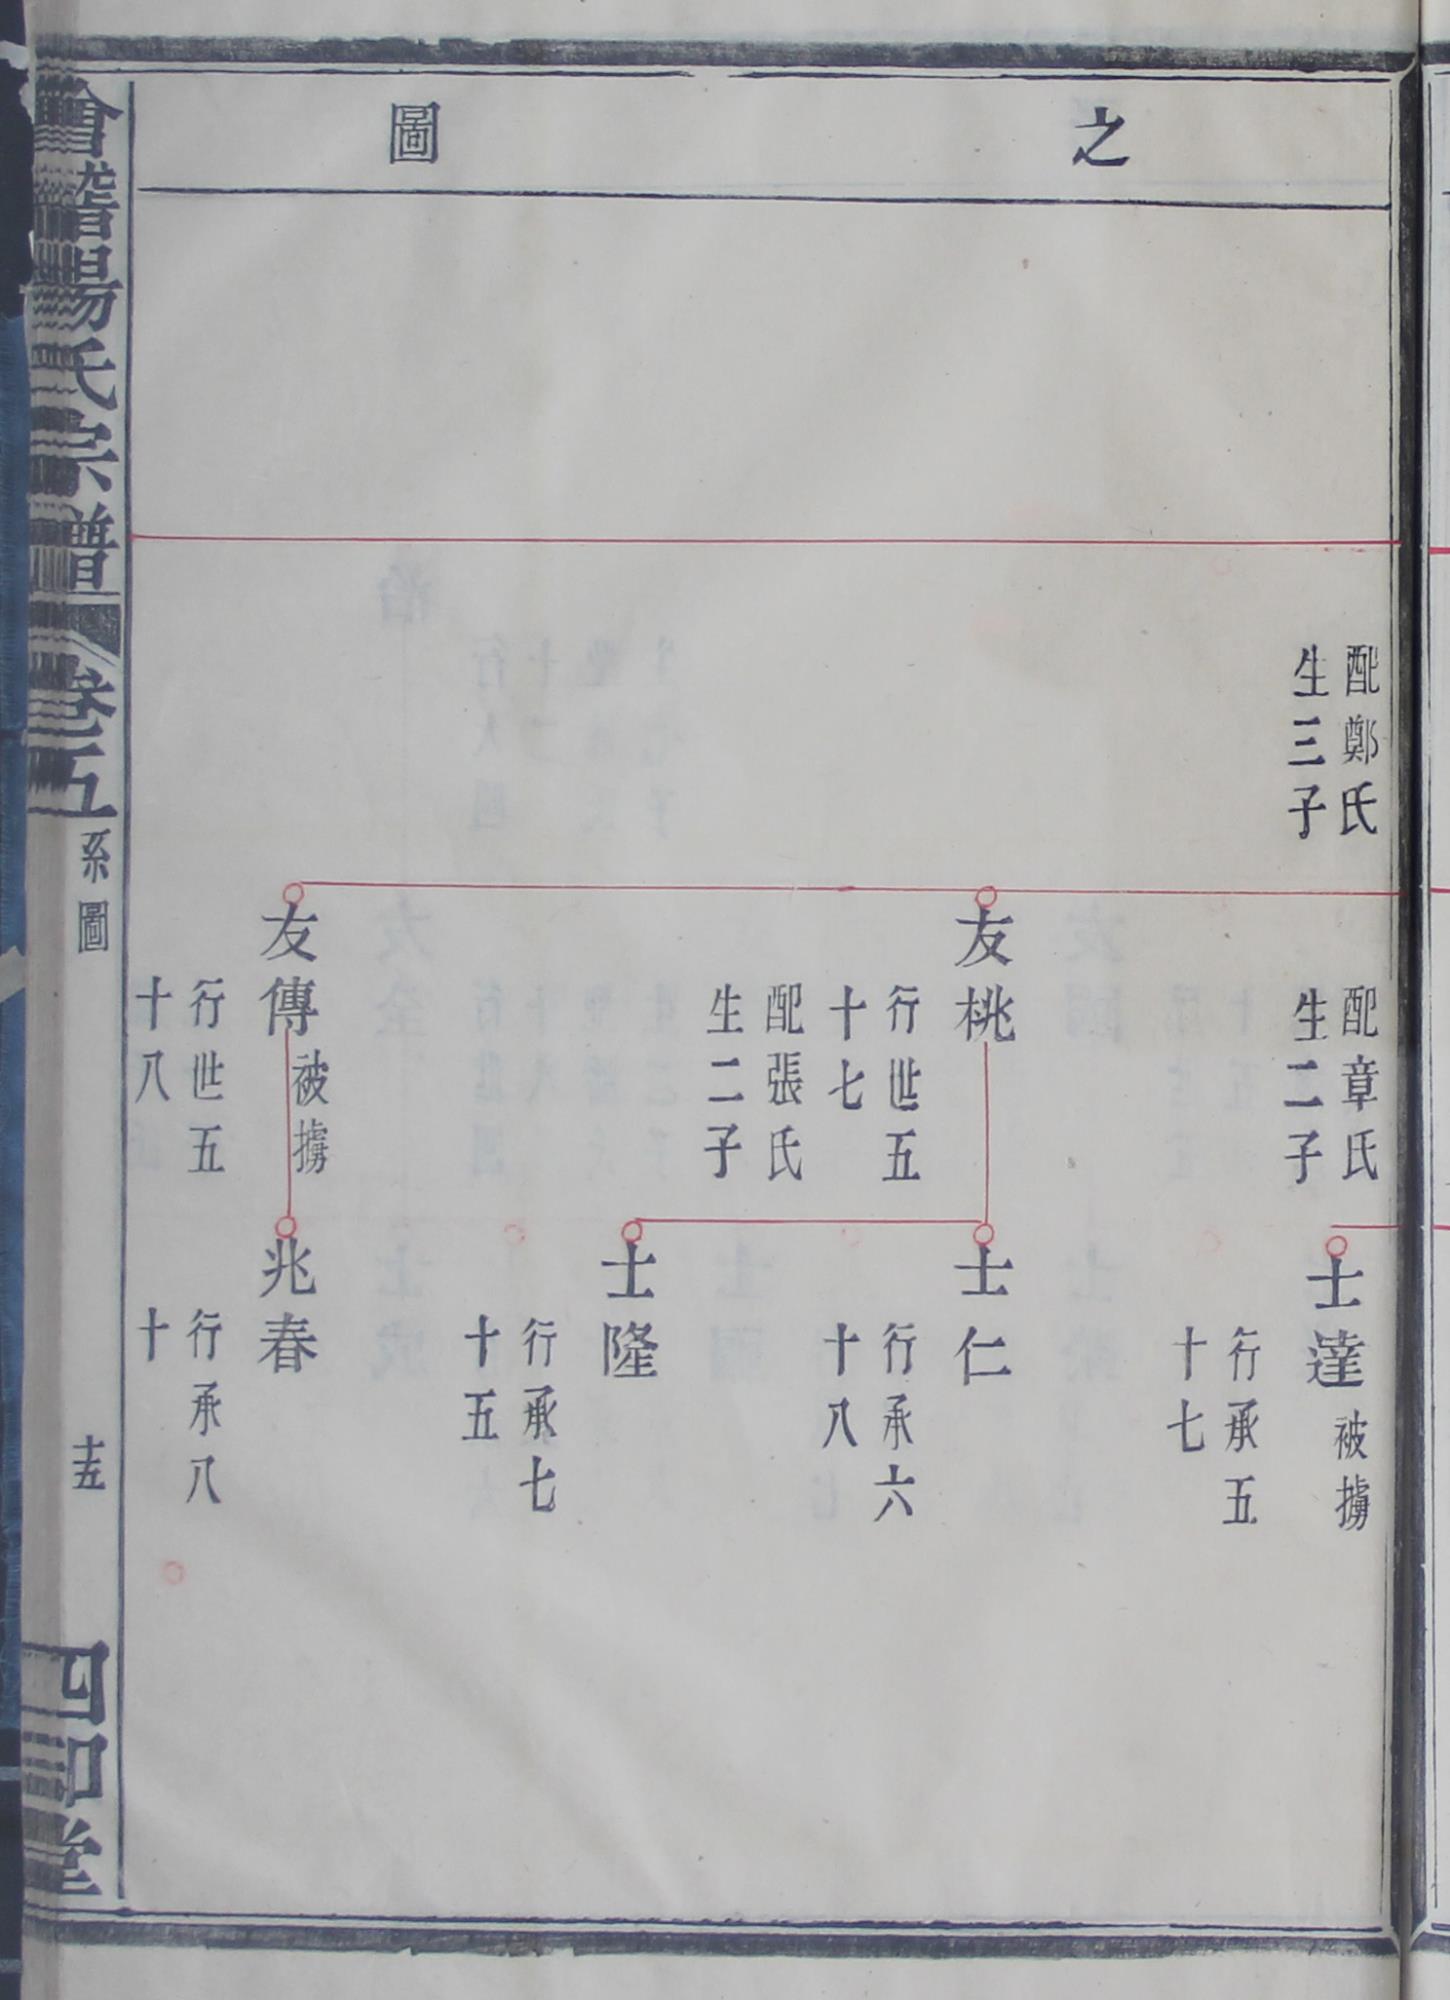 之
圖
配鄭氏
生三子
配章氏
生二子
士達
被擄
行承五
十七
友桃
行世五
十七
配張氏
生二子
士仁
行承六
十八
士隆
行承七
十五
友傳
被擄
行世五
十八
兆春
行承八
十
會稽楊氏宗譜
卷五
系圖
十五
四知堂